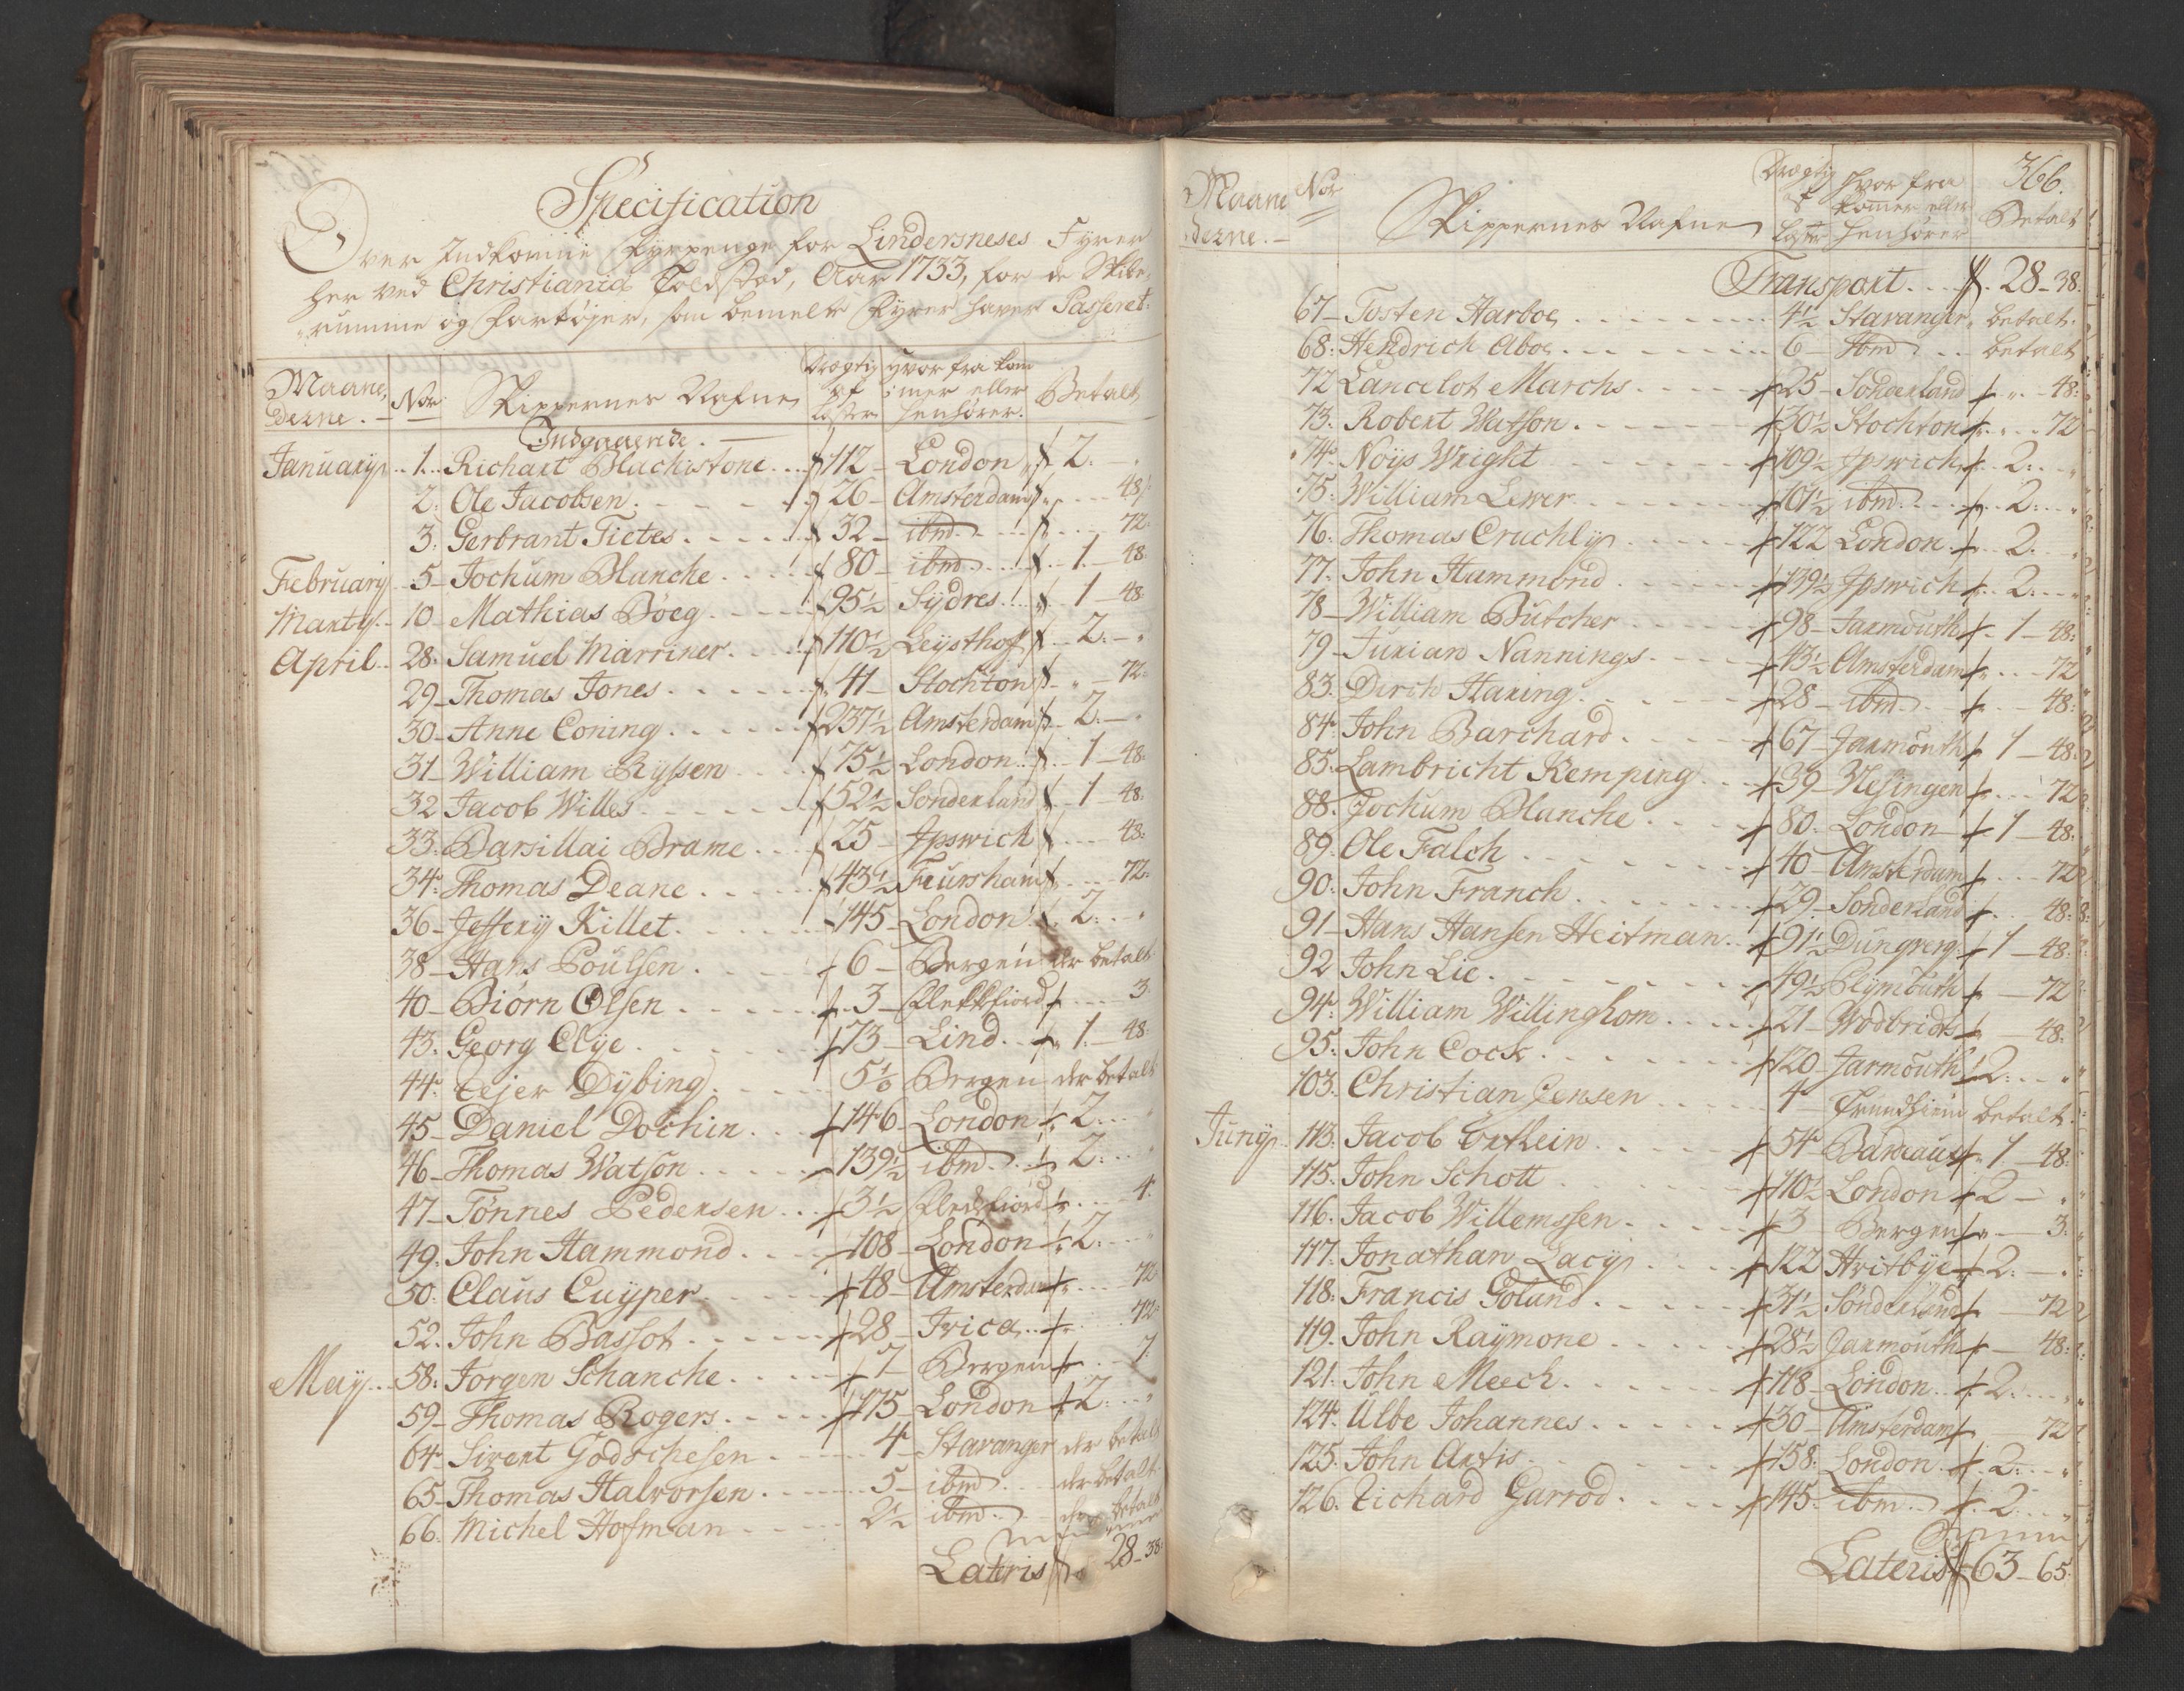 Specification
Over Indkomne Fyrpenge for Lindersneses Fyrer
her ved Christiania Toldsted, Aar 1733, for de Skibe,
rumme og Fartøjer, som bemelte Fyrer haver Passeret:
Maane, derne. Nor Skippernes Nafne Drægtig af Lester hvor fra kom mer eller henhører. Betalt
Indgaaende.
January 1. Richart Blachistone 112 London 2.
2. Ole Jacobsen 26 Amsterdam 48
3. Gerbrant Tietes 32 ibm 72
February 5 Jochum Blanche 80 ibm 1 48
Marty 10 Mathias Böeg 95½ Sÿdres 1 48
April 28. Samuel Marriner 110½ Leÿsthoff 2.
29 Thomas Jones 41 Stochton 72
30 Anne Coning 237½ Amsterdam 2.
31 William Ryssen 75½ London 1 48
32 Jacob Willes 52½ Sonderland 1 48
33. Barsillai Brame 25 Ipswich 48
34. Thomas Deane 43½ Feursham 72
36 Jeffery Killet 145 London 2.
38 Hans Poulsen 6 Bergen der betalt
40 Biörn Olsen 3 Flekkfiord 3
43. Georg Elÿe 73 Lind 1 48
44. Eejer Dÿbing 5½ Bergen der betalt
45 Daniel Dochin 146 London 2
46 Thomas Watson 139½ ibm 2
47 Tönnes Pedersen 3½ Flekkfiord 4
49. John Hammond 108 London 2
50. Claus Cuÿper 48 Amsterdam 72
52. John Bassot 28 Irica 72
May 58. Jorgen Schanche 7 Bergen 7
59 Thomas Rogers 175 London 2
64 Sivert Godschesen 4 Stavanger der betalt
65 Thomas Halvorsen 5 ibm der betalt
66. Michel Hofman 2½ ibm der betalt
Lateris 28 38
366.
Maane derne. Nor Skippernes Nafne Drægtig af Lester hvor fra kommer eller henhører Betalt
Transport 28 38.
67 Tosten Harboe 4½ Stavanger betalt
68. Hendrich Aboe 6 ibm betalt
72 Lancelot Marchs 25 Sonderland 48
73. Robert Watson 30½ Stochton 72
74. Noÿs Wright 109½ Ipswich 2.
75. William Lewer 101½ ibm 2.
76. Thomas Cruchly 122 London 2.
77. John Hammond 139½ Ipswich 2.
78 William Butcher 98 Jarmouth 1 48
79 Jurian Nannings 43½ Amsterdam 72
83. Dirch Haring 28 ibm 48
84. John Barchard 67 Jarmouth 1 48
85. Lambricht Kemping 39 Vlesingen 72
88. Jochum Blanche 80 London 1 48
89. Ole Falch 40 Amsterdam 72
90. John Franch 29 Sonderland 48
91 Hans Hansen Heitman 91½ Dunqverq 1 48
92 John Lie 49½ Plÿmouth 72
94. William Willinghom 21 Wodbridts 48
95. John Cock 120 Jarmouth 2.
103. Christian Jensen 4 Trundhiem betalt
Juny 113. Jacob Corthein 54 Burdeaux 1 48
115. John Schott 110½ London 2
116. Jacob Willemssen 3 Bergen 3
117. Jonathan Lacÿ 122 Hvitbÿe 2.
118. Francis Goland 31½ Sonderland 72
119. John Raÿmone 28½ Jarmouth 48
121. John Meech 118 London 2.
124. Ulbe Johannes 30 Amsterdam 72
125. John Artis 158 London 2.
126. Richard Garrod 145 ibm 2.
Lateris 63 65